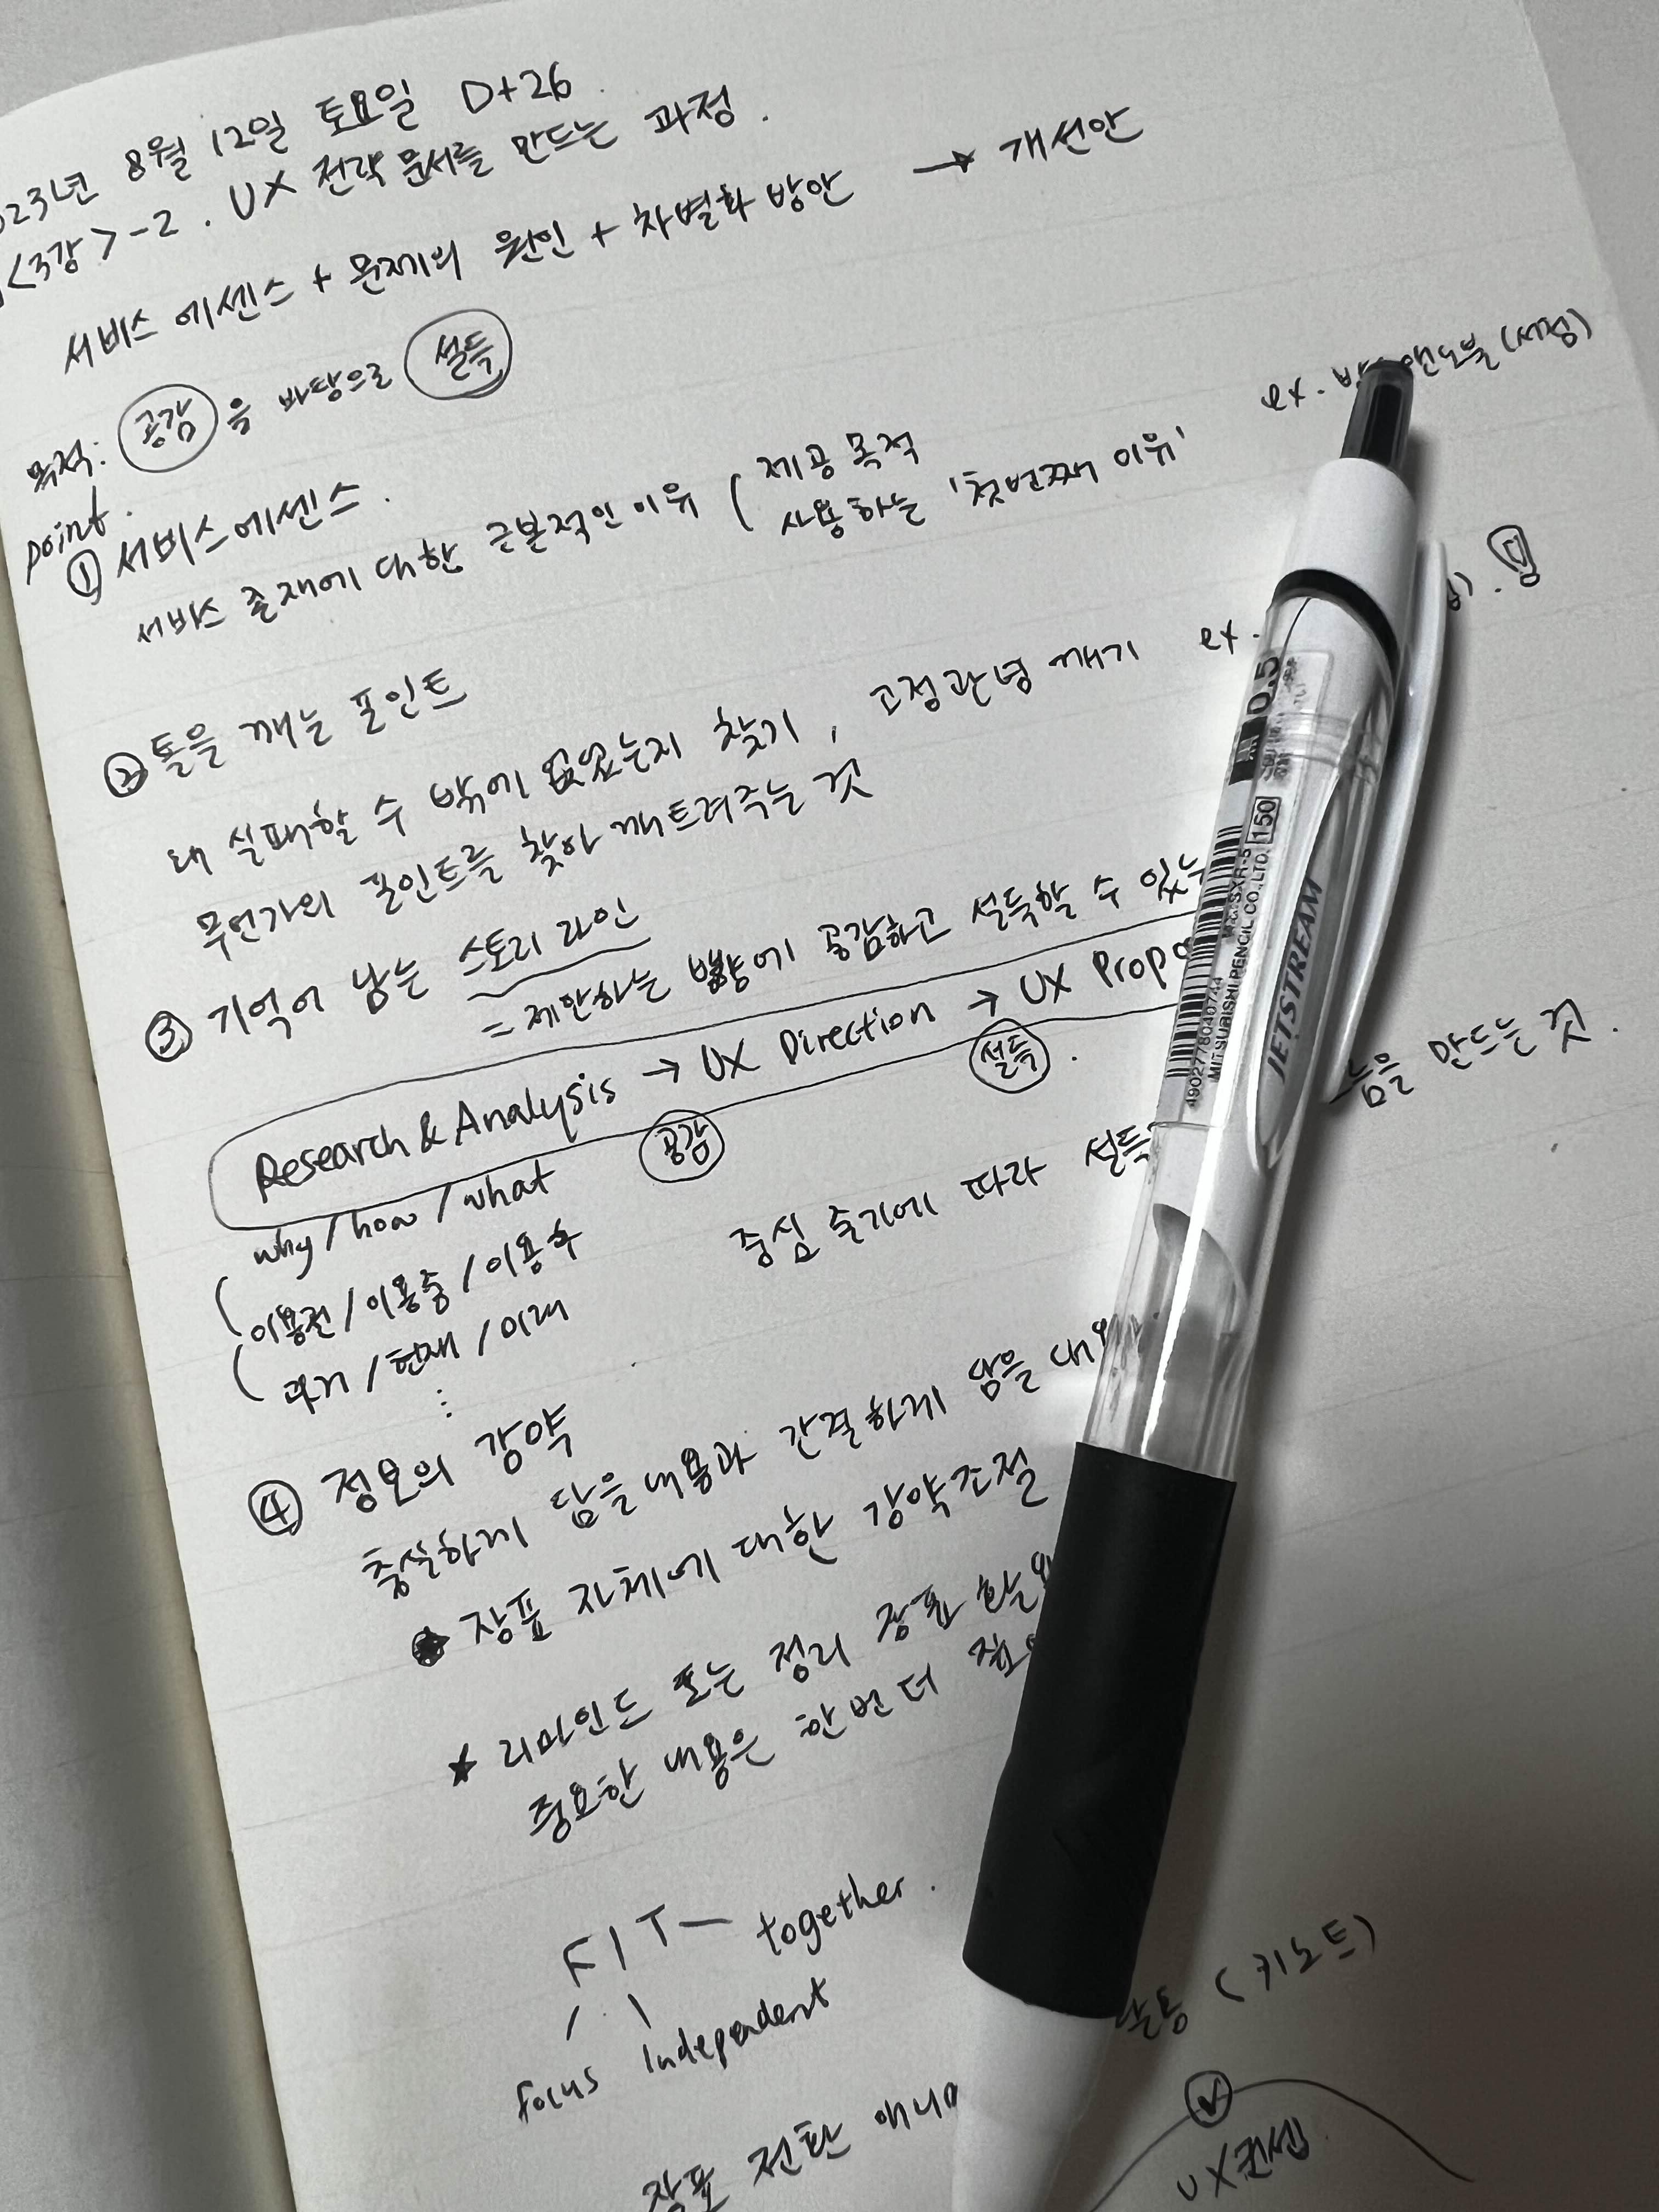 23년 8월 12일 토요일 D+26.
<3강>-2. UX 전략 문서를 만드는 과정.
서비스 에센스 + 문제의 원인 + 차별화 방안 → 개선안
목적: 공감을 바탕으로 설득
point.
① 서비스 에센스.
서비스 존재에 대한 근본적인 이유 ( 제공 목적
사용하는 '첫번째 이유'
ex. 앤노블 (서점)
② 틀을 깨는 포인트
왜 실패할 수 밖에 없었는지 찾기, 고정관념 깨기 ex.
무언가의 포인트를 찾아 깨트려주는 것
③ 기억에 남는 스토리 라인
= 제안하는 방향에 공감하고 설득할 수 있는
Research & Analysis → UX Direction → UX Propo
공감
설득.
why / how / what
( 이용전 / 이용중 / 이용후
( 과거 / 현재 / 미래
⋮
중심 줄기에 따라 설득
음을 만드는 것.
④ 정보의 강약
충실하게 담을 내용과 간결하게 담을 내용
장표 자체에 대한 강약조절
★ 리마인드 또는 정리 장표 활용
중요한 내용은 한번 더
FIT — together.
focus independent
(키노트)
장표 전환 애니메
UX컨셉
JETSTREAM
0.5
150
SXR-5
MITSUBISHI PENCIL CO.,LTD.